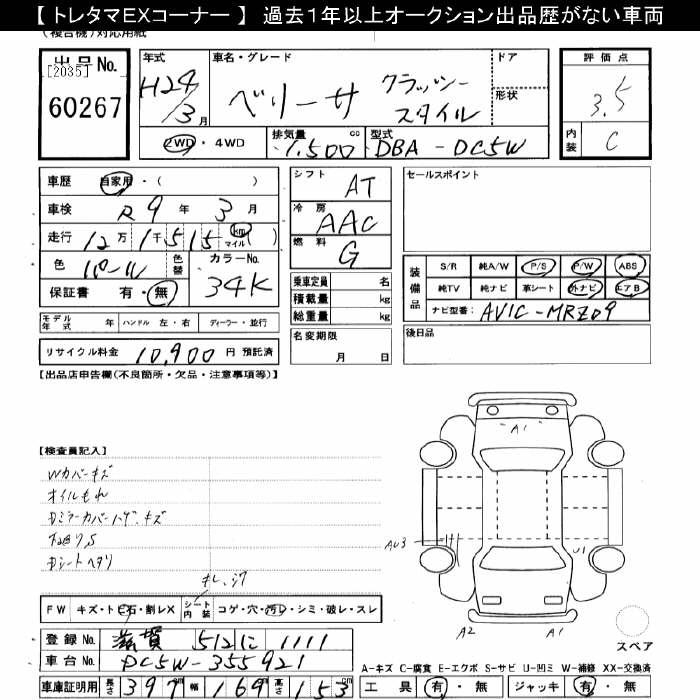 【 トレタマEXコーナー 】 過去1年以上オークション出品歴がない車両
(複合機)対応用紙
出品No.
[2035]
60267
年式 H24/3月
車名・グレード ベリーサ クラッシースタイル
ドア
形状
2WD ・ 4WD
排気量 1,500 cc
型式 DBA-DC5W
評価点
3.5
内装 C
車歴 自家用・( )
車検 R9年 3月
走行 12万1千515 km マイル ( )
色 パール 色替
カラーNo. 34K
保証書 有・無
シフト AT
冷房 AAC
燃料 G
乗車定員 名
積載量 kg
総重量 kg
名変期限
月 日
セールスポイント
装備品
S/R 純A/W P/S P/W ABS
純TV 純ナビ 革シート 外ナビ エアB
ナビ型番: AVIC-MRZ09
後日品
モデル年式 年 ハンドル 左・右 ディーラー・並行
リサイクル料金 10,900 円 預託済
【出品店申告欄(不良箇所・欠品・注意事項等)】
【検査員記入】
Wカバーキズ
オイルもれ
Dミラーカバーハゲ、キズ
下廻りS
Dシートヘタリ
キレ、シワ
FW キズ・ト ビ石・割レX
シート内装 コゲ・穴・汚レ・シミ・破レ・スレ
A1
AU3
U1
A2
A1
スペア
登録No. 滋賀 512 に 1111
車台No. DC5W-355921
車庫証明用 長さ 397 幅 169 高さ 153 cm
A-キズ C-腐食 E-エクボ S-サビ U-凹ミ W-補修 XX-交換済
工具 有・無 ジャッキ 有・無